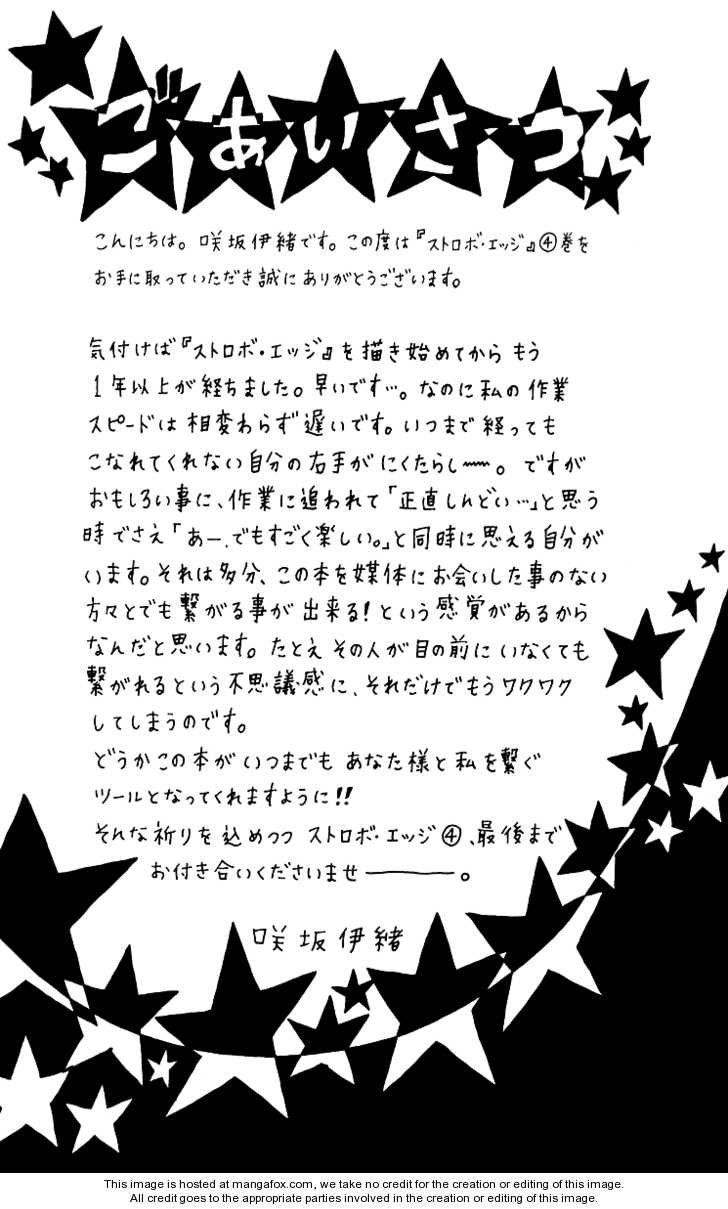 ごあいさつ
こんにちは。咲坂伊緒です。この度は『ストロボ・エッジ』④巻を
お手に取っていただき誠にありがとうございます。
気付けば『ストロボ・エッジ』を描き始めてからもう
1年以上が経ちました。早いです…。なのに私の作業
スピードは相変わらず遅いです。いつまで経っても
こなれてくれない自分の右手がにくたらし〜〜。ですが
おもしろい事に、作業に追われて「正直しんどい…」と思う
時でさえ「あー、でもすごく楽しい。」と同時に思える自分が
います。それは多分、この本を媒体にお会いした事のない
方々とでも繋がる事が出来る!という感覚があるから
なんだと思います。たとえその人が目の前にいなくても
繋がれるという不思議感に、それだけでもうワクワク
してしまうのです。
どうかこの本がいつまでもあなた様と私を繋ぐ
ツールとなってくれますように!!
そんな祈りを込めつつ ストロボ・エッジ④、最後まで
お付き合いくださいませ――。
咲坂伊緒
This image is hosted at mangafox.com, we take no credit for the creation or editing of this image.
All credit goes to the appropriate parties involved in the creation or editing of this image.